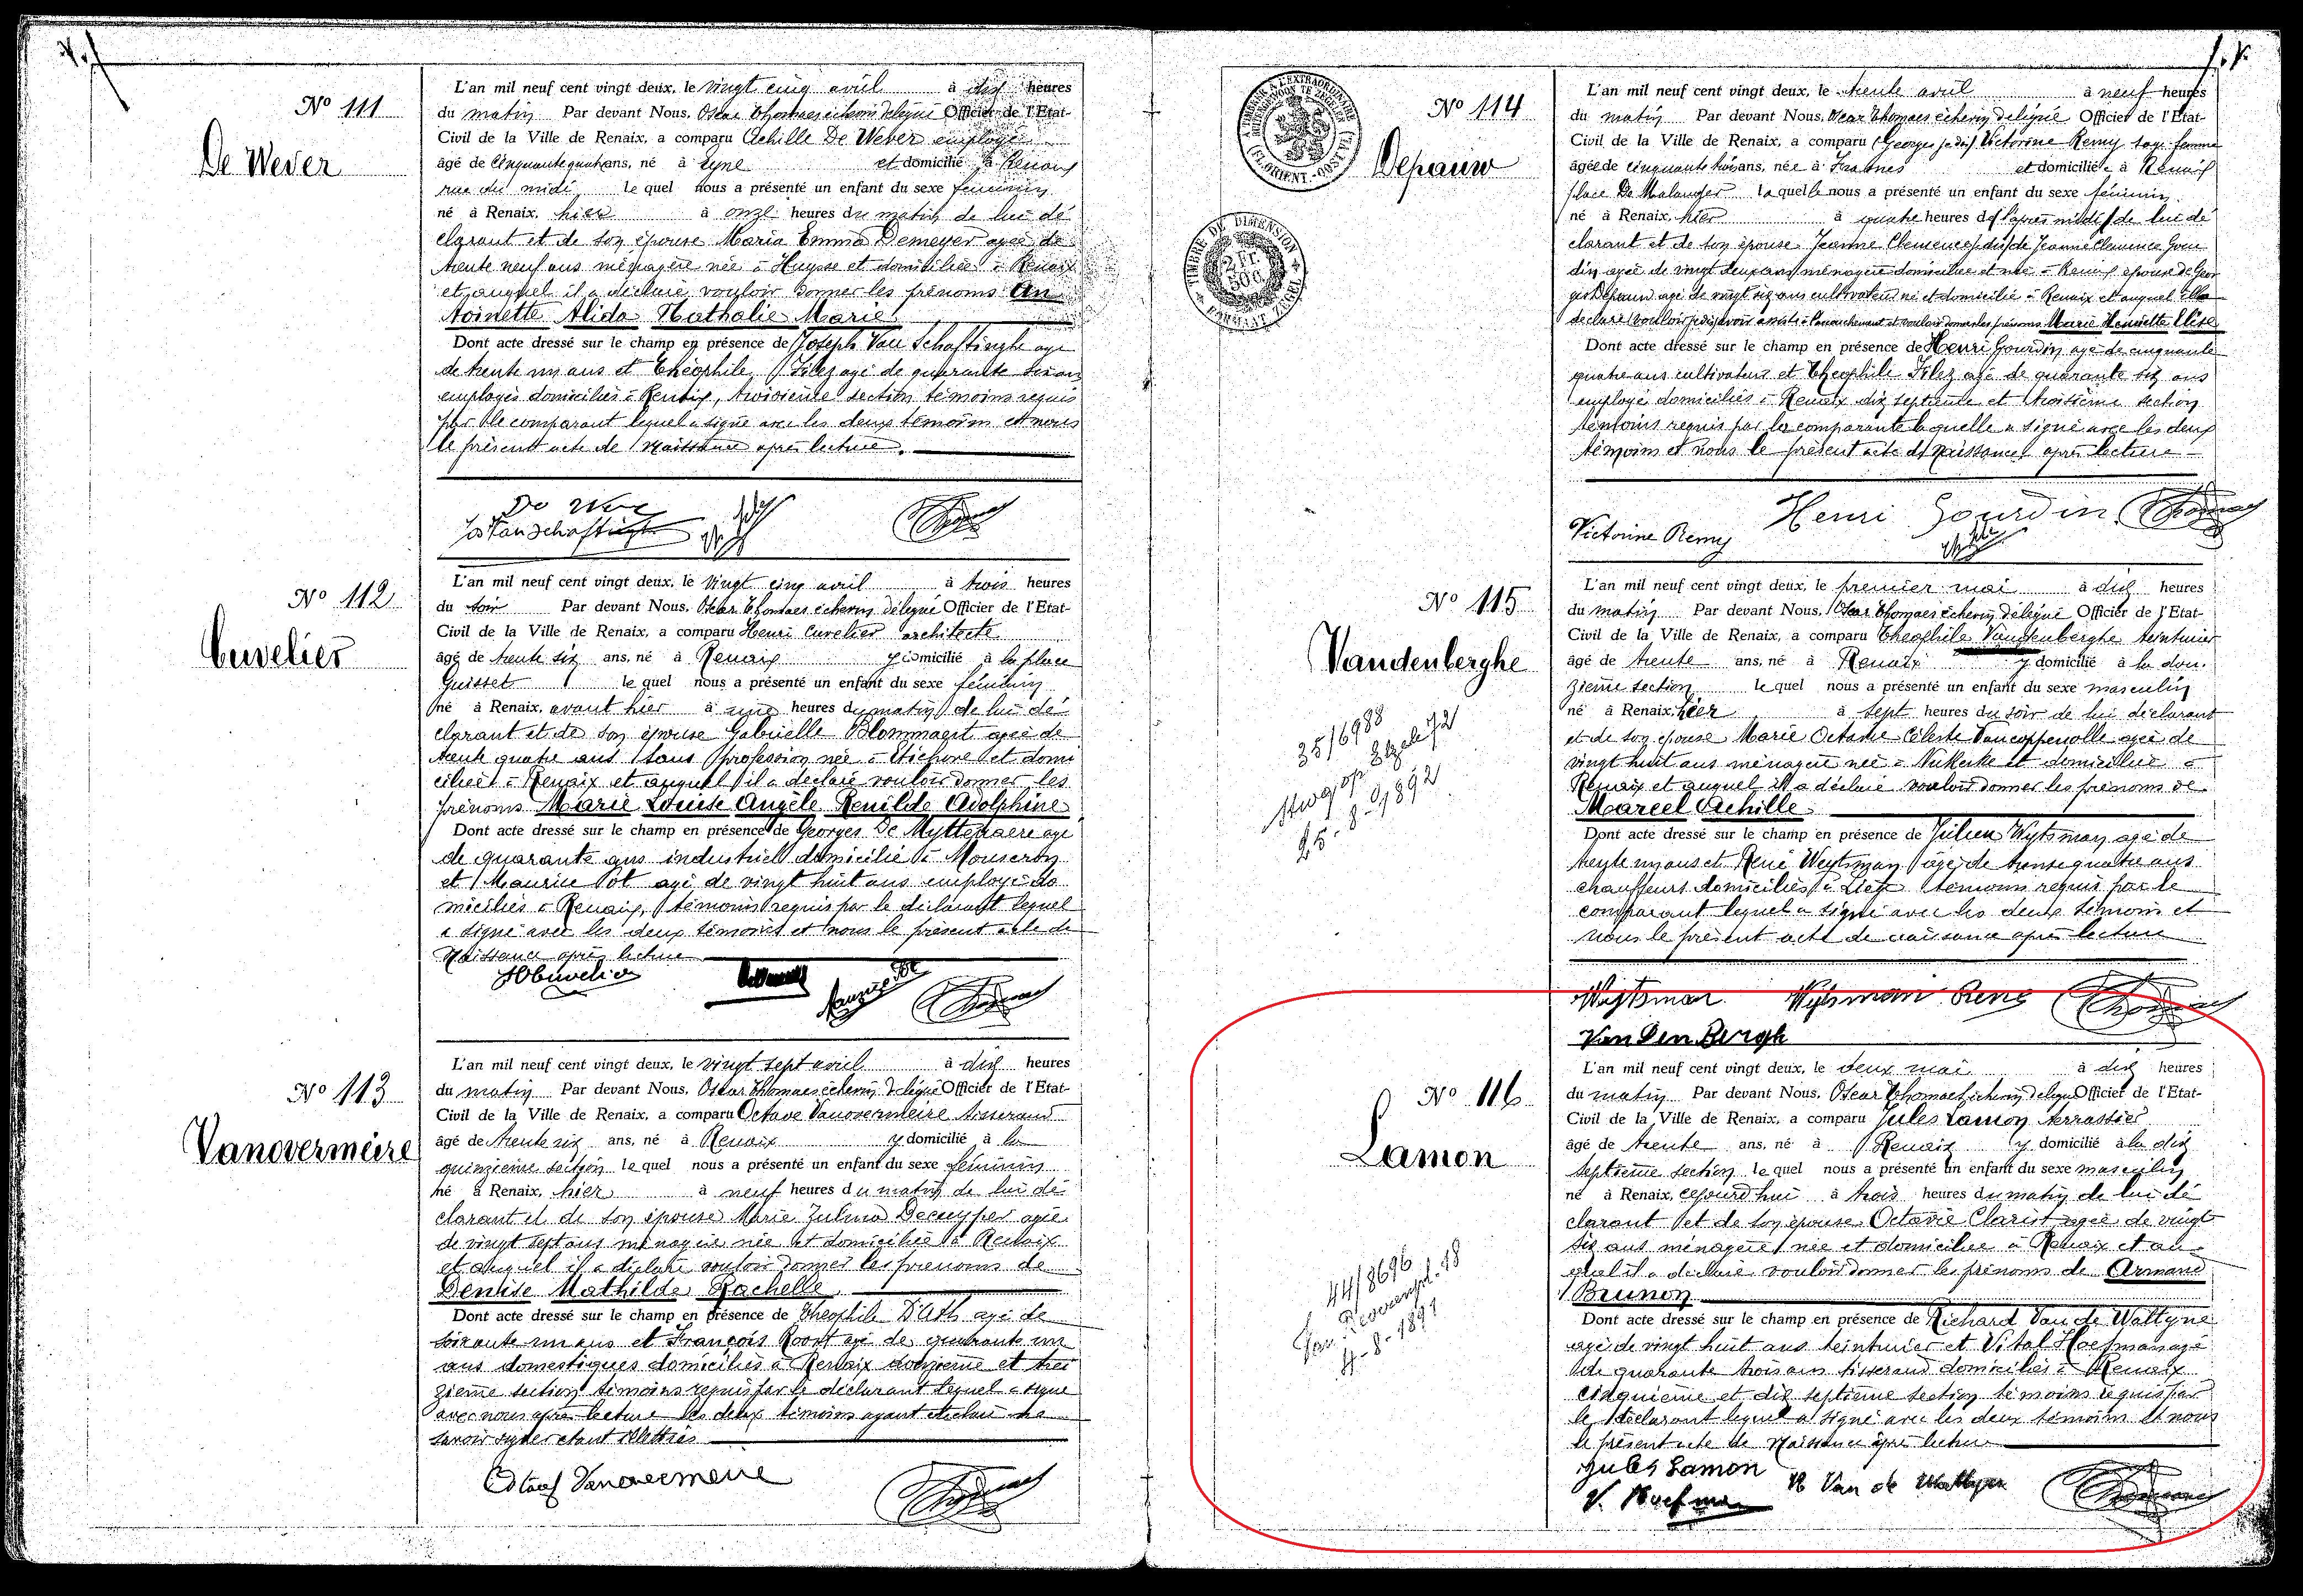 Nº 111
De Wever
L'an mil neuf cent vingt deux, le vingt cinq avril à dix heures
du matin Par devant Nous, Oscar Thomaes échevin délégué Officier de l'Etat-
Civil de la Ville de Renaix, a comparu Achille De Wever employé
âgé de cinquante quatre ans, né à Eyne et domicilié à Renaix
rue du midi le quel nous a présenté un enfant du sexe féminin
né à Renaix, hier à onze heures du matin de lui dé
clarant et de son épouse Maria Emma Demeyer agée de
trente neuf ans ménagère née à Huysse et domiciliée à Renaix
et auquel il a déclaré vouloir donner les prénoms An
toinette Alida Nathalie Marie
Dont acte dressé sur le champ en présence de Joseph Van Schaftinghe agé
de trente un ans et Théophile agé de quarante six ans
employés domiciliés à Renaix, troisième section témoins requis
par le comparant lequel a signé avec les deux témoins et nous
le présent acte de naissance après lecture.
Jos Vanschaftinghe
Nº 112
Cuvelier
L'an mil neuf cent vingt deux, le vingt cinq avril à trois heures
du soir Par devant Nous, Oscar Thomaes échevin délégué Officier de l'Etat-
Civil de la Ville de Renaix, a comparu Henri Cuvelier architecte
âgé de trente six ans, né à Renaix y domicilié à la place
Guisset le quel nous a présenté un enfant du sexe féminin
né à Renaix, avant hier à onze heures du matin de lui dé
clarant et de son épouse Gabrielle Blommaert agée de
trente quatre ans sans profession née à Etichove et domi
ciliée à Renaix et auquel il a déclaré vouloir donner les
prénoms Marie Louise Angèle Renilde Adolphine
Dont acte dressé sur le champ en présence de Georges De Myttenaere agé
de quarante ans industriel domicilié à Mouscron
et Maurice Pot agé de vingt huit ans employé do
miciliés à Renaix, témoins requis par le déclarant lequel
a signé avec les deux témoins et nous le présent acte de
naissance après lecture
HCuvelier
Nº 113
Vanovermeire
L'an mil neuf cent vingt deux, le vingt sept avril à dix heures
du matin Par devant Nous, Oscar Thomaes échevin délégué Officier de l'Etat-
Civil de la Ville de Renaix, a comparu Octave Vanovermeire tisserand
âgé de trente six ans, né à Renaix y domicilié à la
quinzième section le quel nous a présenté un enfant du sexe féminin
né à Renaix, hier à neuf heures du matin de lui dé
clarant et de son épouse Marie Zulma Decuyper agée
de vingt sept ans ménagère née et domiciliée à Renaix
et auquel il a déclaré vouloir donner les prénoms de
Denise Mathilde Rachelle
Dont acte dressé sur le champ en présence de Théophile D'Ath agé de
soixante un ans et François Roost agé de quarante un
ans domestiques domiciliés à Renaix douzième et trei
zième section témoins requis par le déclarant lequel a signé
avec nous après lecture les deux témoins ayant déclaré ne
savoir signer étant illettrés
Octaaf Vanovermeire
Nº 114
Depauw
L'an mil neuf cent vingt deux, le trente avril à neuf heures
du matin Par devant Nous, Oscar Thomaes échevin délégué Officier de l'Etat-
Civil de la Ville de Renaix, a comparu (Georges je dis) Victorine Remy sage femme
âgée de cinquante trois ans, née à Frasnes et domiciliée à Renaix
place De Malander laquelle nous a présenté un enfant du sexe féminin
né à Renaix, hier à quatre heures de l'après midi de lui dé
clarant et de son épouse Jeanne Clémence je dis de Jeanne Clémence Gour
din agée de vingt deux ans ménagère domiciliée et née à Renaix épouse de Geor
ges Depauw agé de vingt six ans cultivateur né et domicilié à Renaix et auquel elle
déclaré vouloir je dis avoir assisté à l'accouchement et vouloir donner les prénoms Marie Henriette Elise
Dont acte dressé sur le champ en présence de Henri Gourdin agé de cinquante
quatre ans cultivateur et Théophile agé de quarante six ans
employé domiciliés à Renaix dix septième et troisième section
témoins requis par la comparante laquelle a signé avec les deux
témoins et nous le présent acte de naissance après lecture
Victorine Remy Henri Gourdin
Nº 115
Vandenberghe
L'an mil neuf cent vingt deux, le premier mai à dix heures
du matin Par devant Nous, Oscar Thomaes échevin délégué Officier de l'Etat-
Civil de la Ville de Renaix, a comparu Théophile Vandenberghe teinturier
âgé de trente ans, né à Renaix y domicilié à la dou
zième section le quel nous a présenté un enfant du sexe masculin
né à Renaix, hier à sept heures du soir de lui déclarant
et de son épouse Marie Octavie Céleste Vancoppenolle agée de
vingt huit ans ménagère née à Nukerke et domiciliée à
Renaix et auquel il a déclaré vouloir donner les prénoms de
Marcel Achille
Dont acte dressé sur le champ en présence de Julien Wytsman agé de
trente un ans et René Weytsman agé de trente quatre ans
chauffeurs domiciliés à Liège témoins requis par le
comparant lequel a signé avec les deux témoins et
nous le présent acte de naissance après lecture
Wytsman Wytsman René
Van Den Bergh
Nº 116
Lamon
L'an mil neuf cent vingt deux, le deux mai à dix heures
du matin Par devant Nous, Oscar Thomaes échevin délégué Officier de l'Etat-
Civil de la Ville de Renaix, a comparu Jules Lamon terrassier
âgé de trente ans, né à Renaix y domicilié à la dix
septième section le quel nous a présenté un enfant du sexe masculin
né à Renaix, cejourd'hui à trois heures du matin de lui dé
clarant et de son épouse Octavie Clarist agée de vingt
six ans ménagère née et domiciliée à Renaix et au
quel il a déclaré vouloir donner les prénoms de Armand
Brunon
Dont acte dressé sur le champ en présence de Richard Van de Wattyne
agé de vingt huit ans teinturier et Vital Hoefman agé
de quarante trois ans tisserand domiciliés à Renaix
cinquième et dix septième section témoins requis par
le déclarant lequel a signé avec les deux témoins et nous
le présent acte de naissance après lecture
Jules Lamon
V. Hoefman R Van de Wattyne